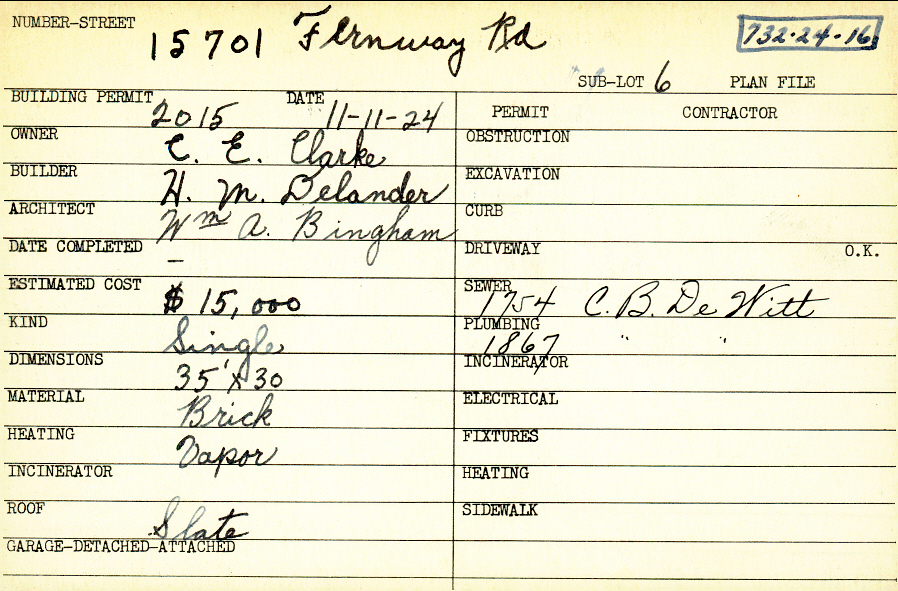 NUMBER-STREET 15701 Fernway Rd 732-24-16
SUB-LOT 6 PLAN FILE
BUILDING PERMIT 2015 DATE 11-11-24
OWNER C. E. Clarke
BUILDER H. M. Delander
ARCHITECT Wm A. Bingham
DATE COMPLETED –
ESTIMATED COST $15,000
KIND Single
DIMENSIONS 35' x 30
MATERIAL Brick
HEATING Vapor
INCINERATOR
ROOF Slate
GARAGE-DETACHED-ATTACHED
PERMIT CONTRACTOR
OBSTRUCTION
EXCAVATION
CURB
DRIVEWAY O.K.
SEWER 1754 C. B. De Witt
PLUMBING 1867 " "
INCINERATOR
ELECTRICAL
FIXTURES
HEATING
SIDEWALK